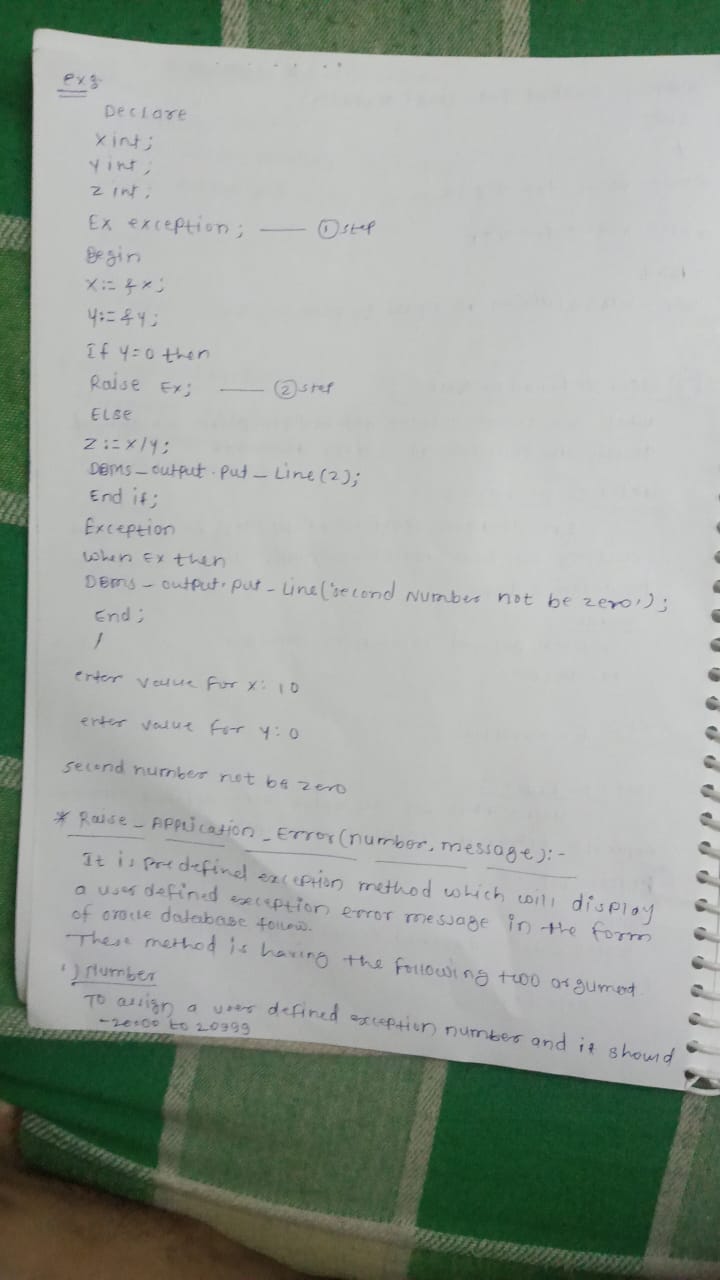 ex:
Declare
X int;
Y int;
Z int;
Ex exception; — ① step
Begin
X:= &x;
Y:= &y;
If Y=0 then
Raise Ex; — ② step
ELSE
Z:= X/Y;
DBMS_output.put_Line(Z);
End if;
Exception
When Ex then
DBms_output.put_Line('second Number not be zero');
End;
/
enter value for x: 10
enter value for y: 0
second number not be zero
* Raise_APPLication_Error(number, message):-
It is pre defined exception method which will display
a user defined exception error message in the form
of oracle database follow.
These method is having the following two argument
1) Number
To assign a user defined exception number and it should
-20000 to 20999